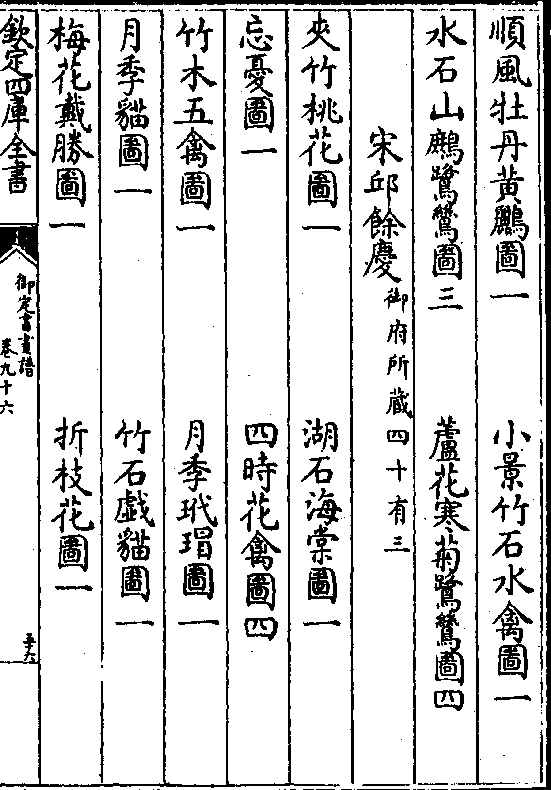 順風牡丹黃鸝圖一　小景竹石水禽圖一
水石山鷓鷺鷥圖三　蘆花寒菊鷺鷥圖四
宋邱餘慶御府所藏四十有三
夾竹桃花圖一　湖石海棠圖一
忘憂圖一　四時花禽圖四
竹木五禽圖一　月季玳瑁圖一
月季貓圖一　竹石戲貓圖一
梅花戴勝圖一　折枝花圖一
欽定四庫全書　御定書畫譜　卷九十六